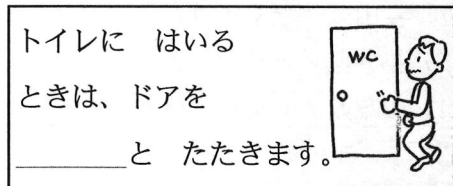 トイレに　はいる
ときは、ドアを
________と　たたきます。
WC